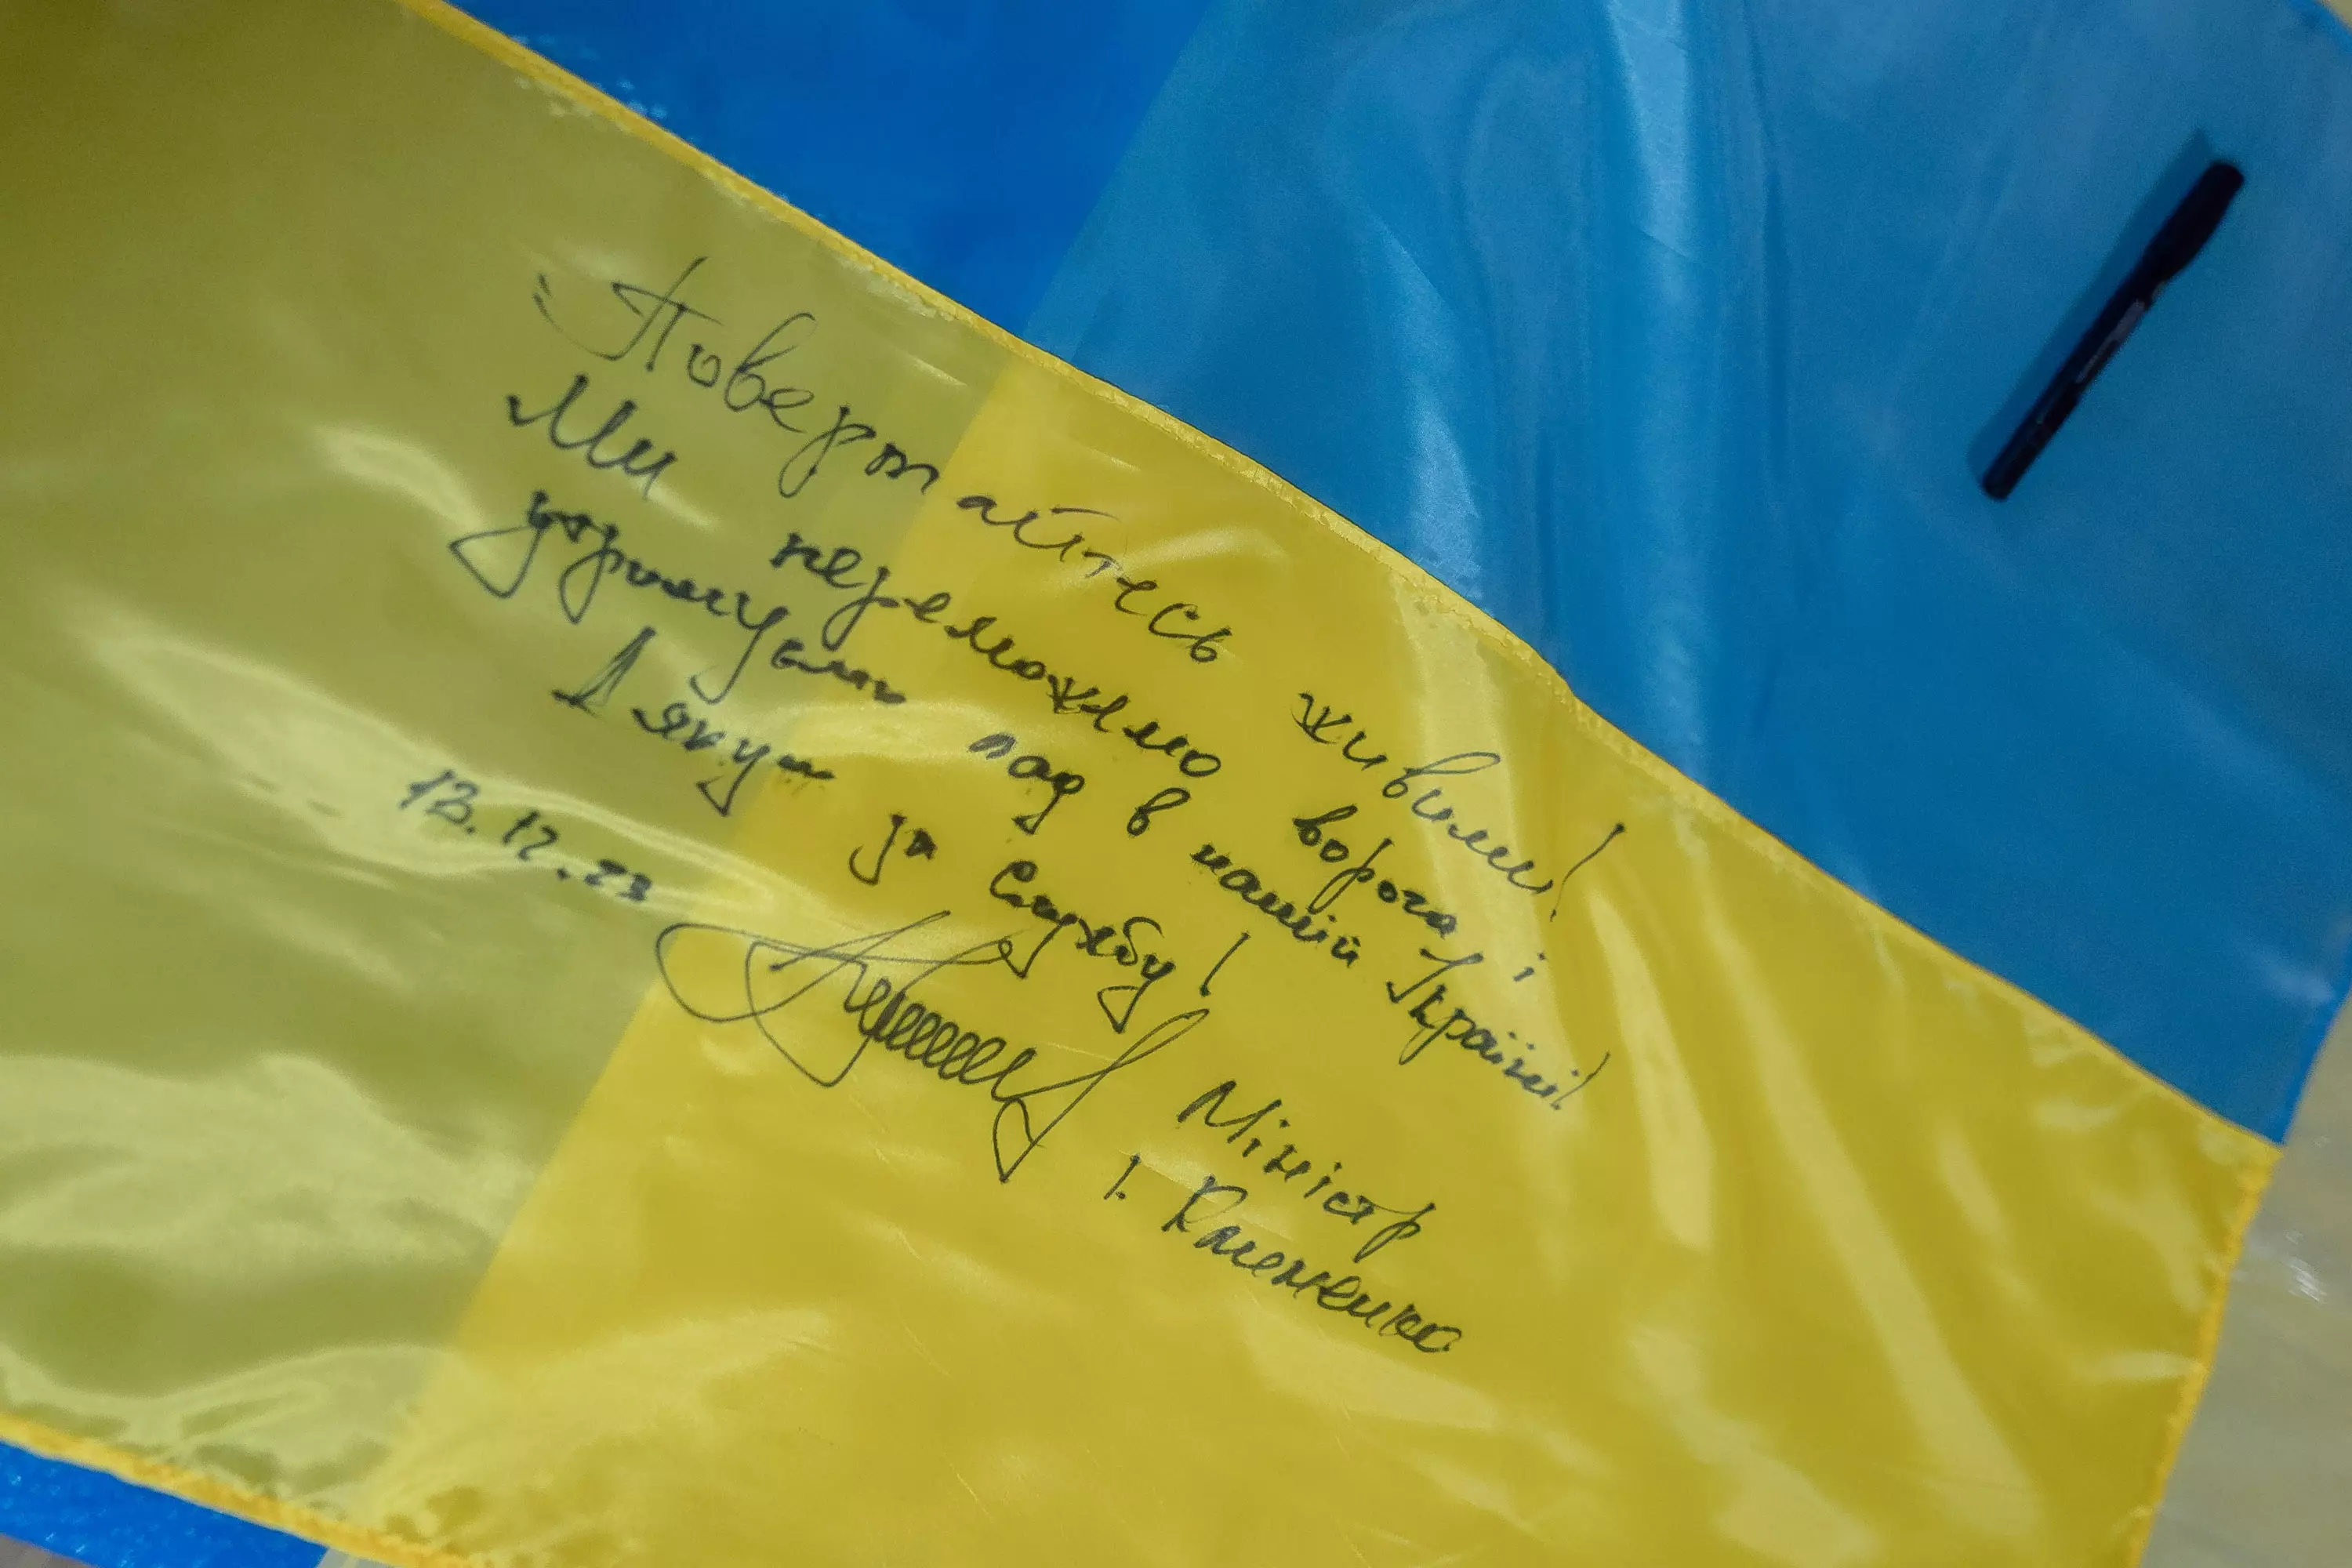 "Повертайтесь живими!
Ми переможемо ворога, і
утримуємо лад в нашій Україні!
Дякую за Службу!
13.12.23
Міністр
І. Клименко